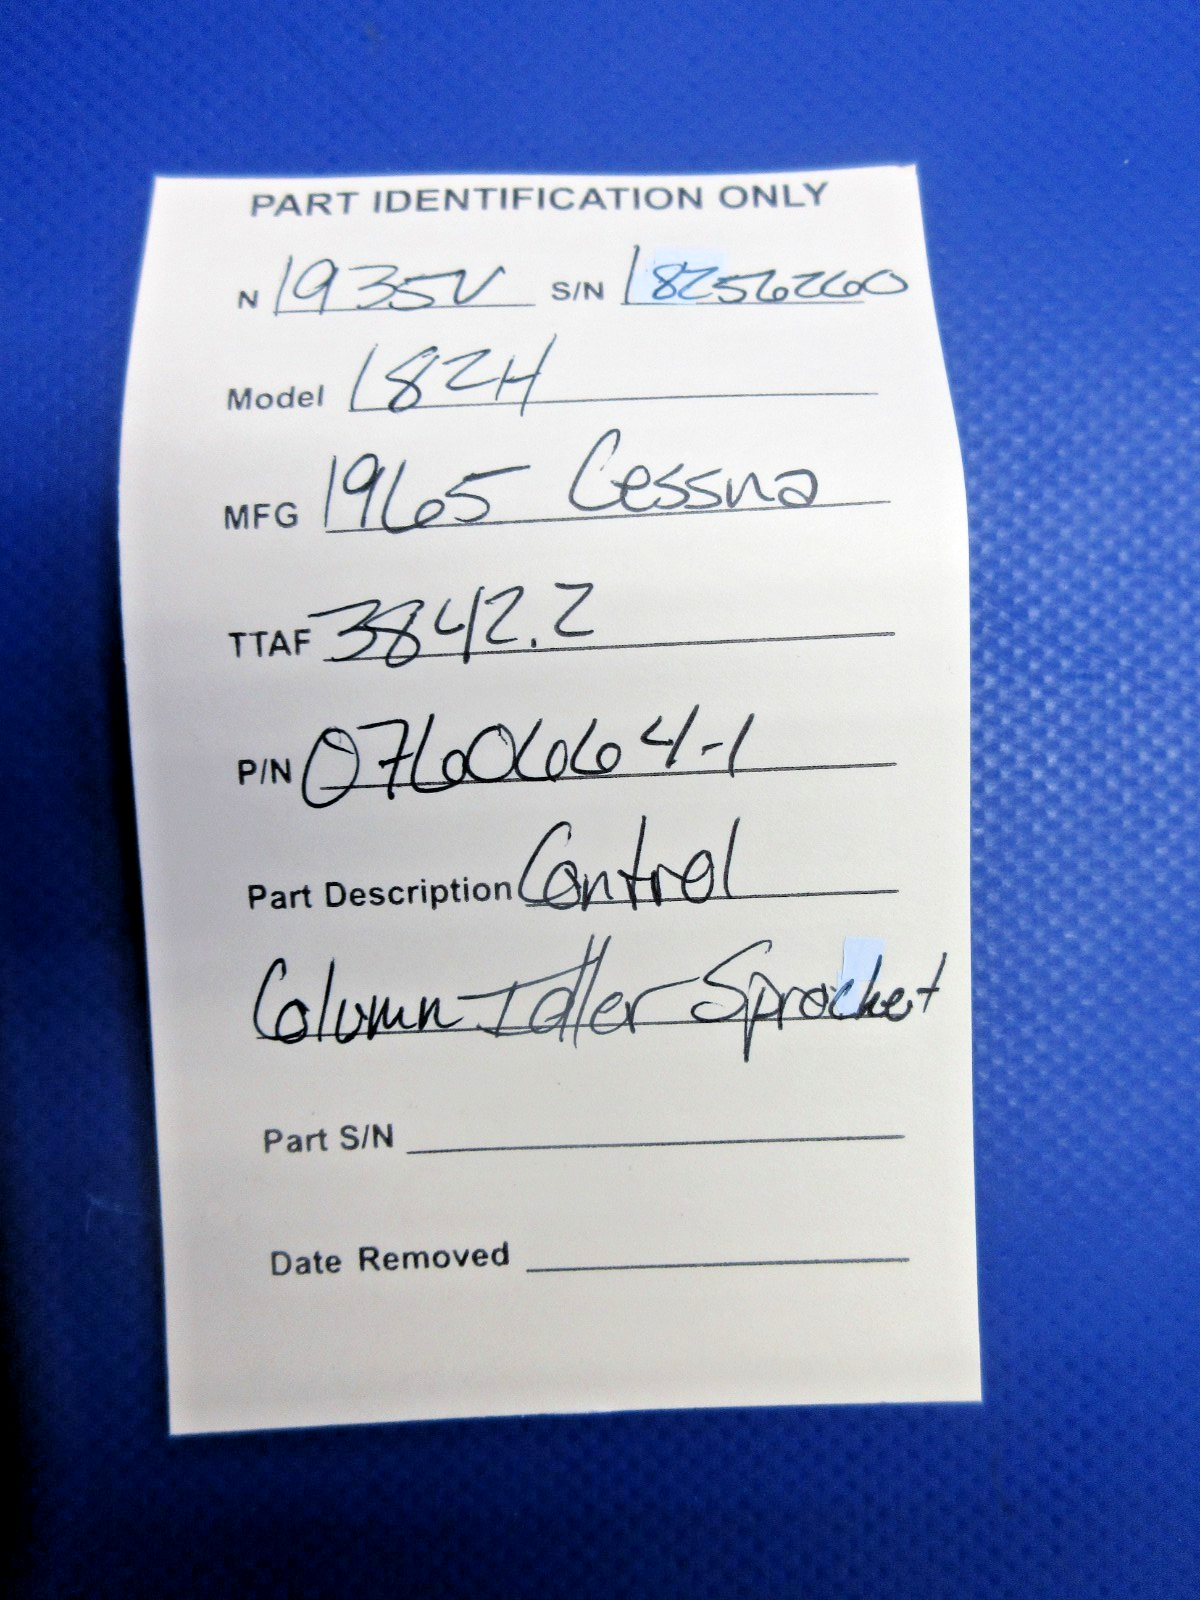 PART IDENTIFICATION ONLY
N 1935V S/N 18256260
Model 182H
MFG 1965 Cessna
TTAF 3842.2
P/N 0760664-1
Part Description Control
Column Idler Sprocket
Part S/N
Date Removed